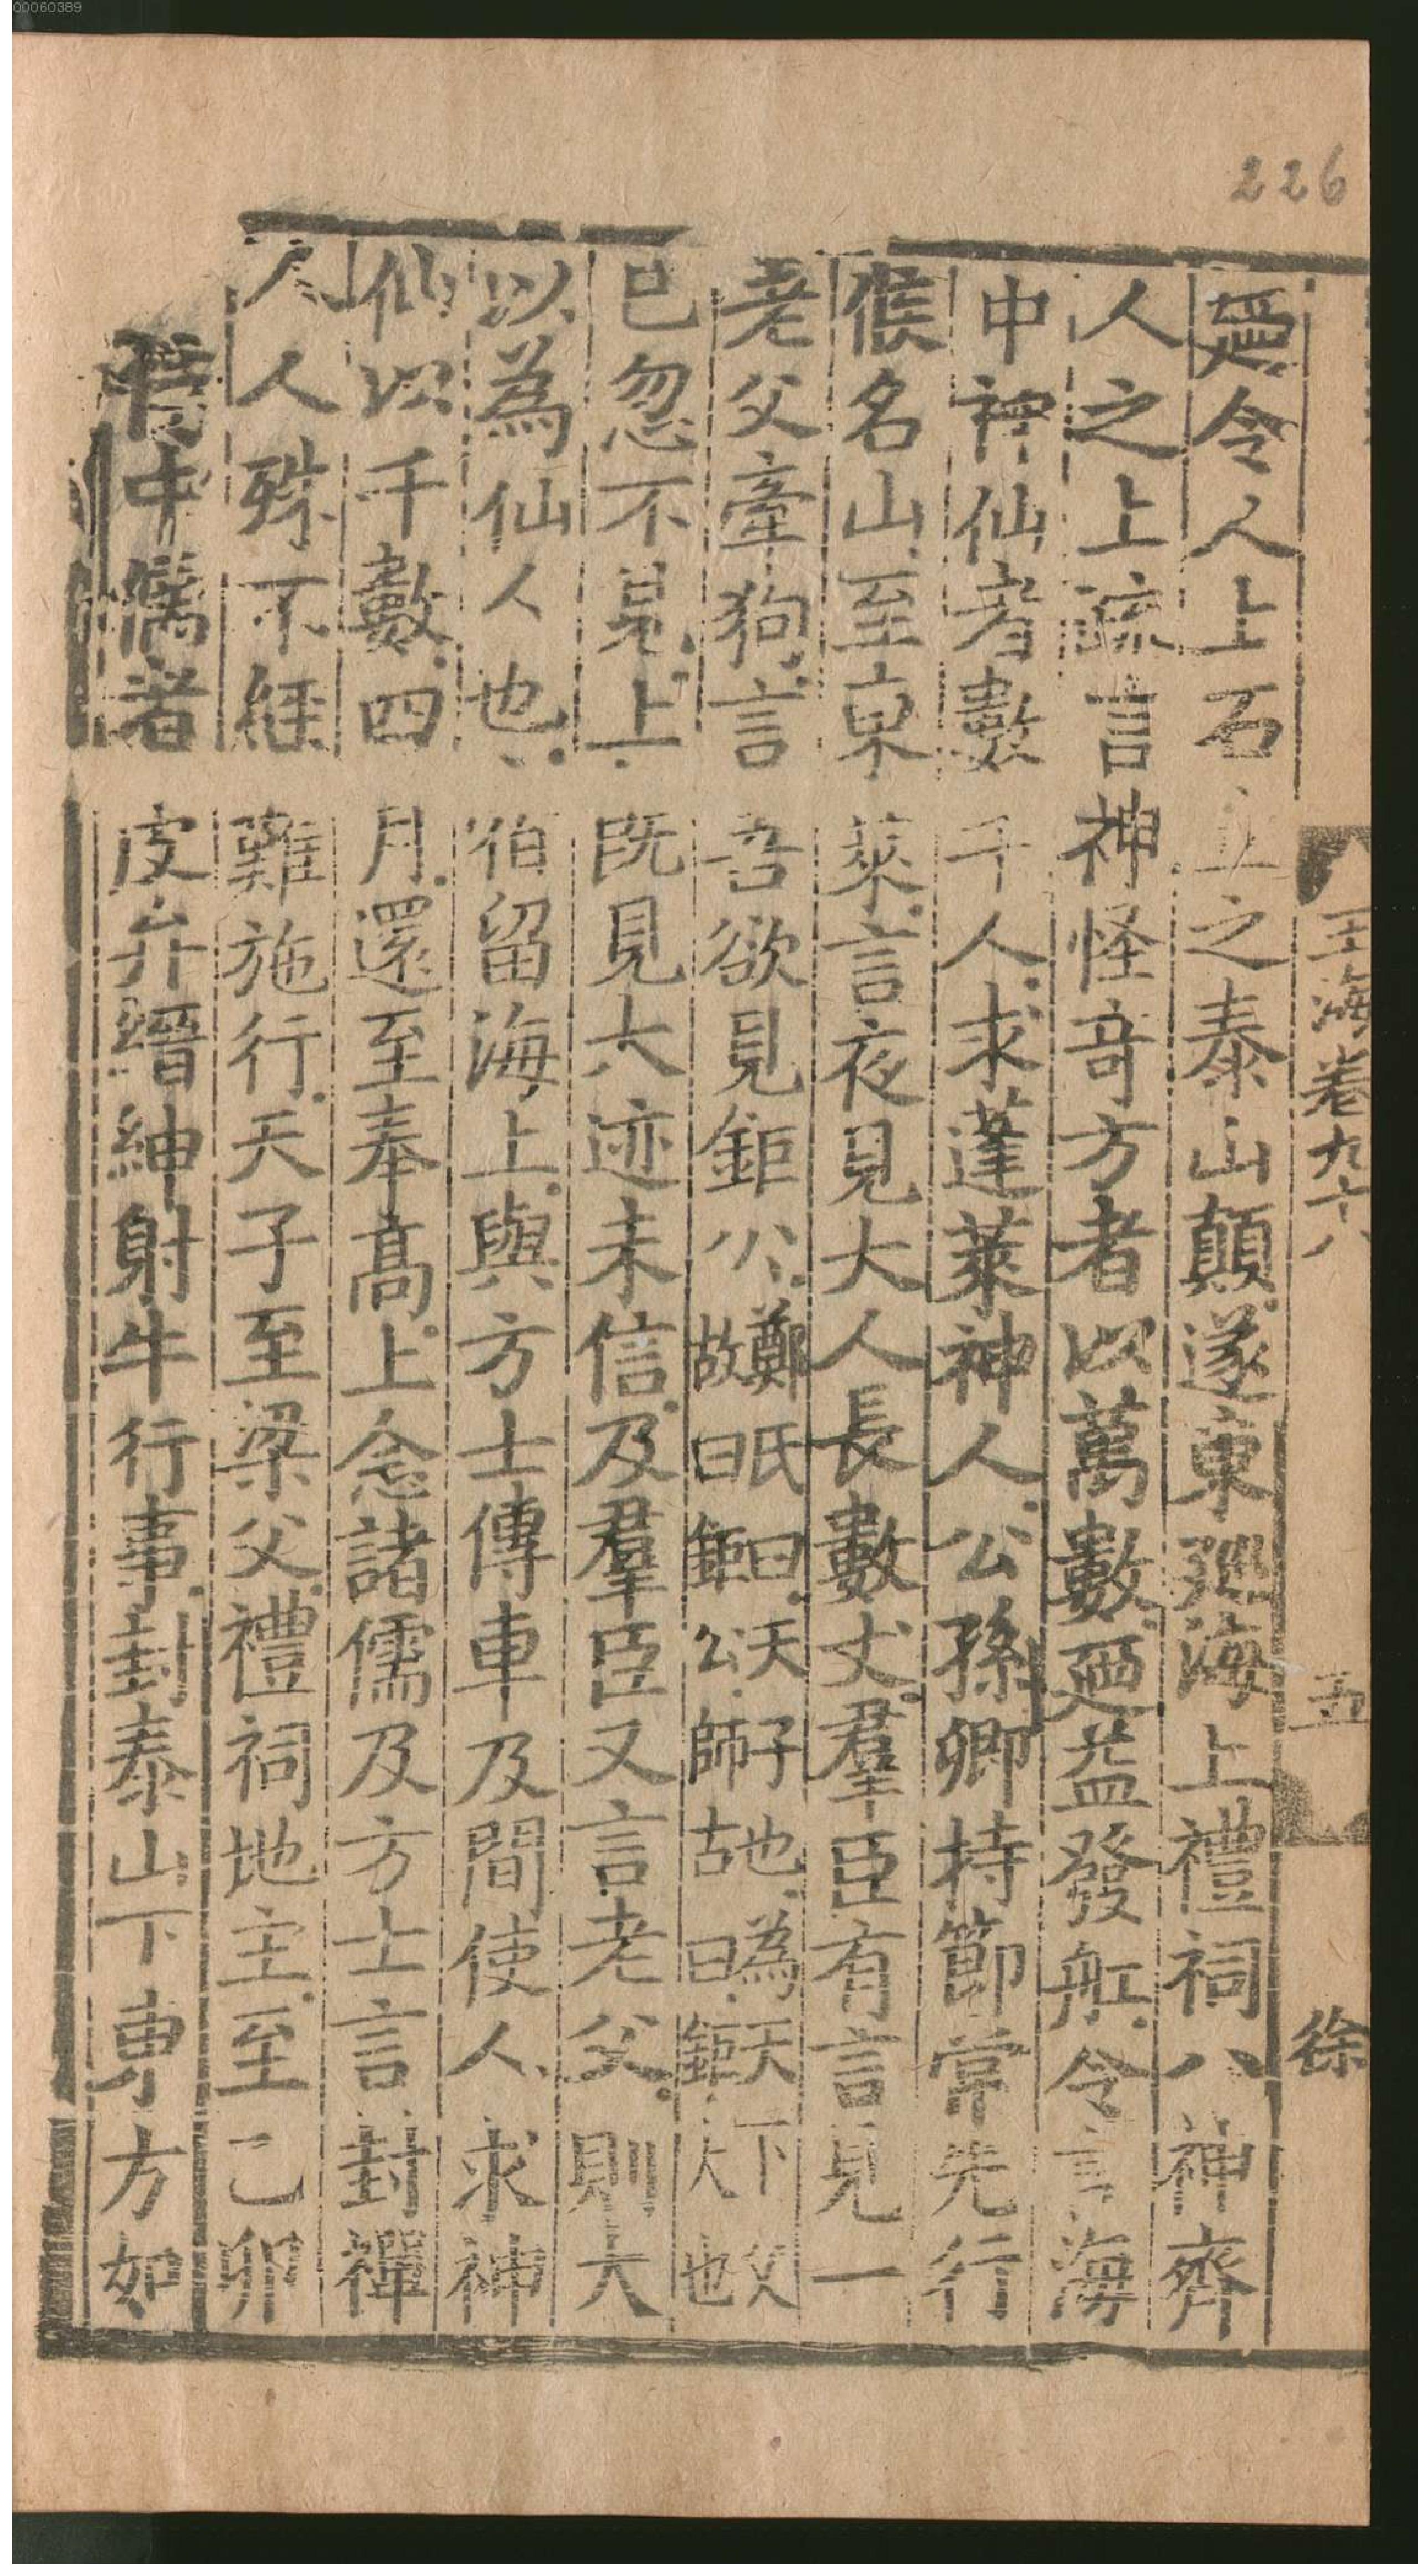 00060389
226
玉海卷九十八
五
徐
廼令人上石立之泰山顛遂東廵海上禮祠八神齊
人之上疏言神怪竒方者以萬數廼益發舡令言海
中神仙者數千人求蓬萊神人公孫卿持節常先行
候名山至東萊言夜見大人長數丈羣臣有言見一
老父牽狗言吾欲見鉅公鄭氏曰天子也為天下父
故曰鉅公師古曰鉅大也
已忽不見上既見大迹未信及羣臣又言老父則大
以為仙人也宿留海上與方士傳車及間使人求神
仙以千數四月還至奉高上念諸儒及方士言封禪
人人殊不經難施行天子至梁父禮祠地主至乙卯
侍中儒者皮弁縉紳射牛行事封泰山下東方如